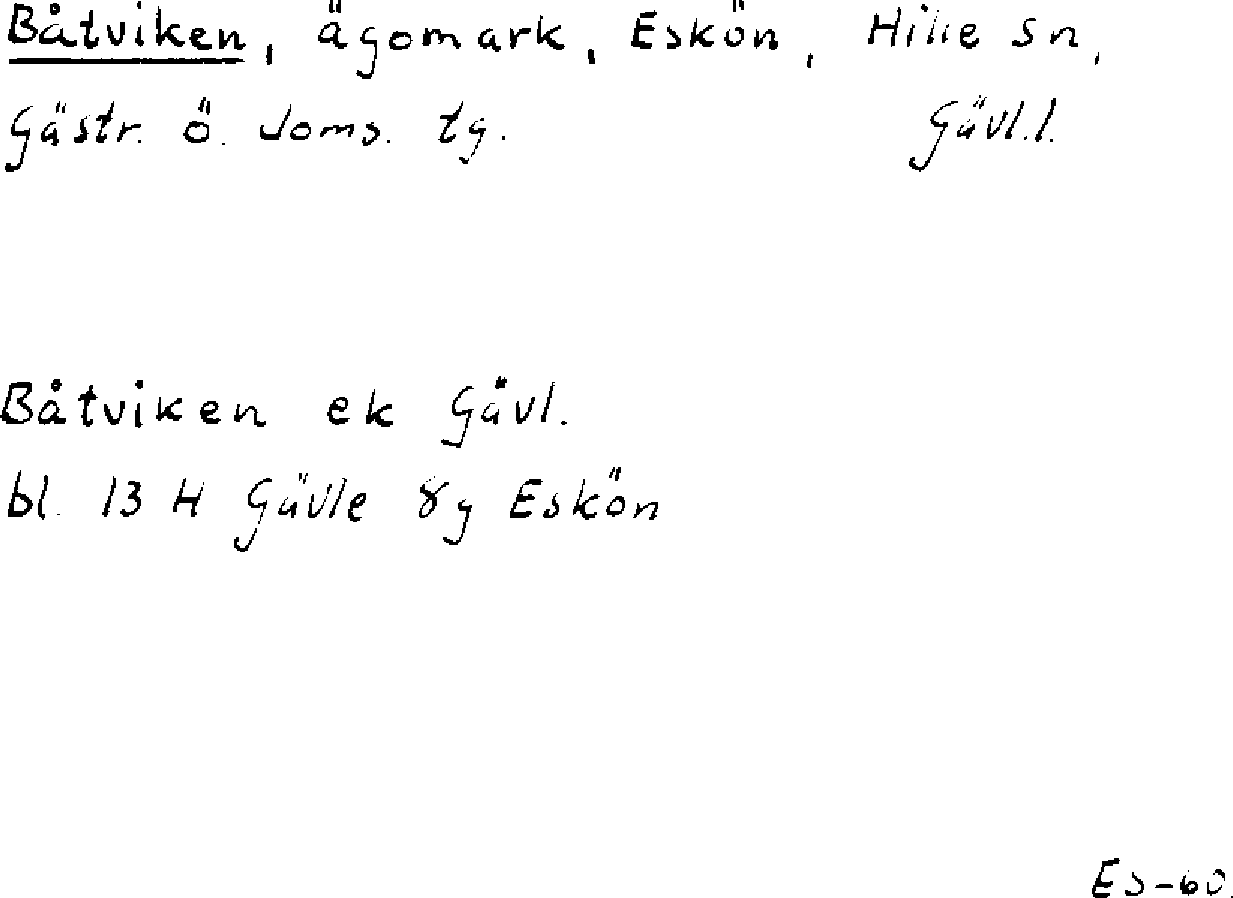 Båtviken, ägomark, Eskön, Hille sn,
Gästr. ö. doms. tg. Gävl.l.
Båtviken ek Gävl.
bl. 13 H Gävle 8g Eskön
ES-60.